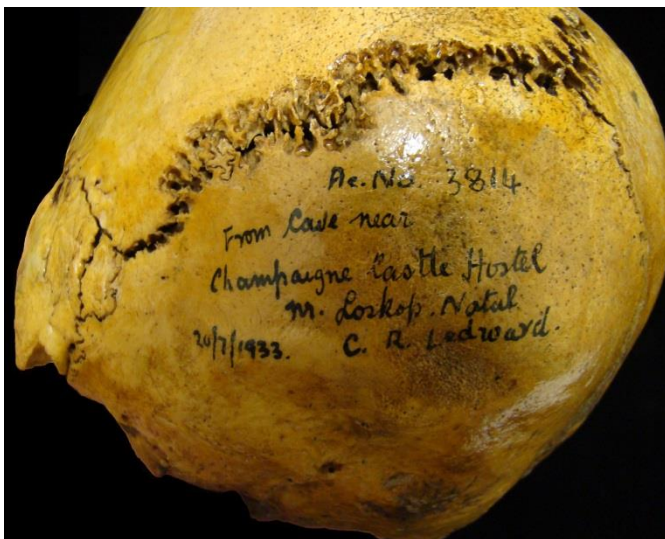 Ac. No. 3814
From Cave near
Champaigne Castle Hostel
nr. Loskop. Natal
20/7/1933. C. R. Ledward.